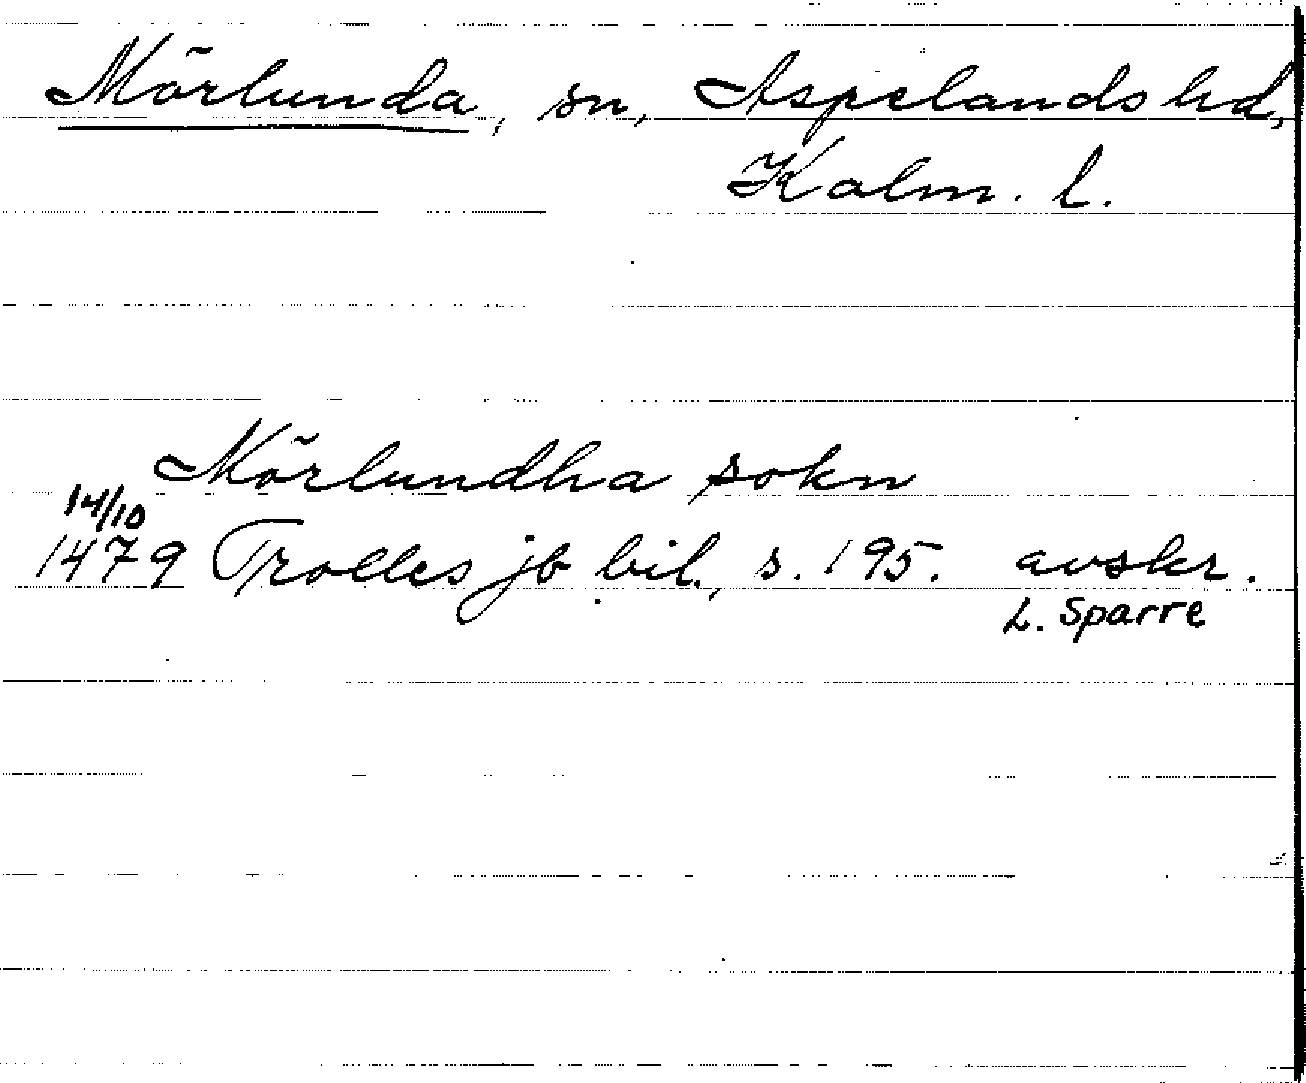 Mörlunda, sn, Aspelands hd,
Kalm. l.
Mörlundha sokn
14/10
1479 Trolles jb bil., s. 195. avskr.
L. Sparre